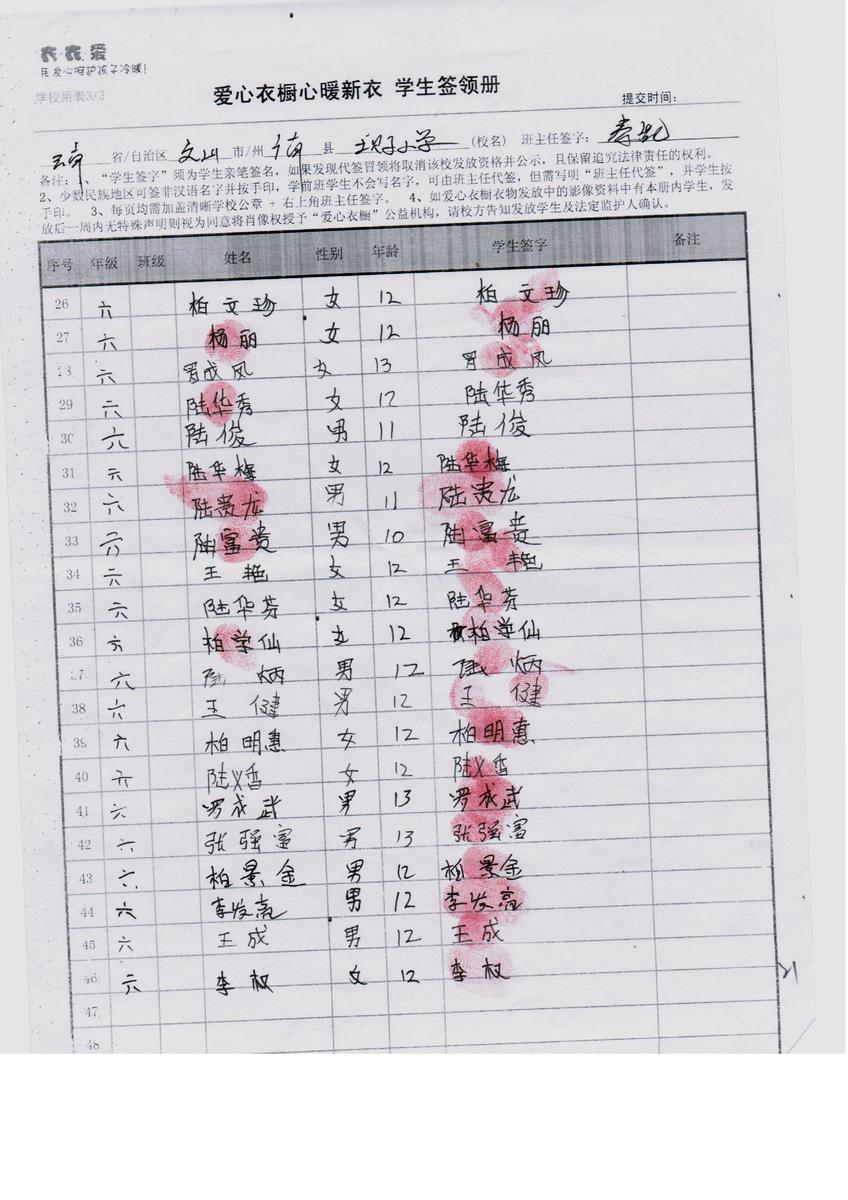 衣·衣·爱
用爱心呵护孩子冷暖!
学校用表3/3
爱心衣橱心暖新衣 学生签领册
提交时间:
云南 省/自治区 文山 市/州 县 小学 (校名) 班主任签字:
备注: 1、“学生签字”须为学生亲笔签名,如果发现代签冒领将取消该校发放资格并公示,且保留追究法律责任的权利。
2、少数民族地区可签非汉语名字并按手印,学前班学生不会写名字,可由班主任代签,但需写明“班主任代签”,并学生按
手印。 3、每页均需加盖清晰学校公章 + 右上角班主任签字。 4、如爱心衣橱衣物发放中的影像资料中有本册内学生,发
放后一周内无特殊声明则视为同意将肖像权授予“爱心衣橱”公益机构,请校方告知发放学生及法定监护人确认。
序号 年级 班级 姓名 性别 年龄 学生签字 备注
26 六 柏文珍 女 12 柏文珍
27 六 杨丽 女 12 杨丽
28 六 罗成凤 女 13 罗成凤
29 六 陆华秀 女 12 陆华秀
30 六 陆俊 男 11 陆俊
31 六 陆华梅 女 12 陆华梅
32 六 陆贵龙 男 11 陆贵龙
33 六 陆富贵 男 10 陆富贵
34 六 王艳 女 12 王艳
35 六 陆华芬 女 12 陆华芬
36 六 柏学仙 女 12 柏学仙
37 六 陆炳 男 12 陆炳
38 六 王健 男 12 王健
39 六 柏明惠 女 12 柏明惠
40 六 陆义香 女 12 陆义香
41 六 罗成武 男 13 罗成武
42 六 张强富 男 13 张强富
43 六 柏景金 男 12 柏景金
44 六 李发亮 男 12 李发亮
45 六 王成 男 12 王成
46 六 李权 女 12 李权
47
48
21